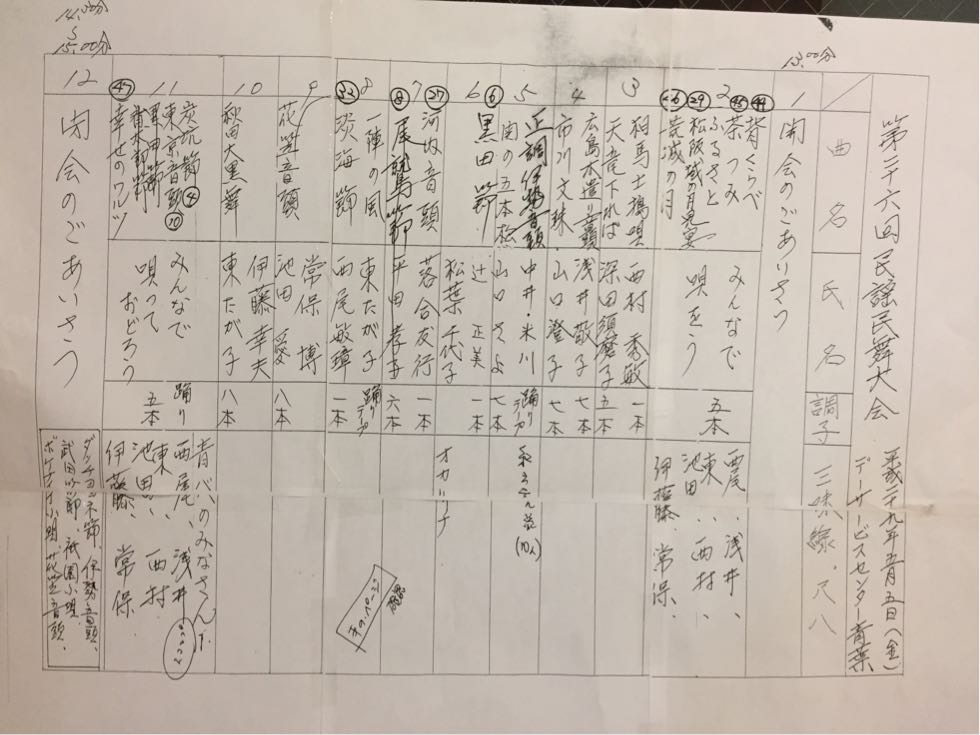 第二十六回民謡民舞大会
平成二十九年五月五日(金)
デーサービスセンター青葉
13.00分
曲名
氏名
調子
三味線、尺八
1
開会のごあいさつ
2
㊹ 背くらべ
㊺ 茶つみ
ふるさと
㉙ 松阪城の月見宴
㉖ 荒城の月
みんなで
唄をう
五本
西尾、浅井、
東、西村、
池田、
伊藤、常保、
3
相馬土搗唄
西村秀敏
一本
天竜下れば
深田須磨子
五本
4
広島木遣り音頭
浅井敬子
七本
市川文珠
山口澄子
七本
5
正調伊勢音頭
中井・米川
踊り
テープ
(10人)
⑥ 関の五本松
山口さよ
七本
6
黒田節
辻正美
一本
松葉千代子
オカリナ
㉗
7
河内音頭
落合友行
一本
⑧ 尾鷲節
平田孝子
六本
8
一陣の風
東たが子
踊り
テープ
㉜ 炭海節
西尾敏璋
一本
9
花笠音頭
常保博
池田愛
八本
10
秋田大黒舞
伊藤幸夫
東たが子
八本
11
炭坑節④
東京音頭⑩
㊼ 幸せのワルツ
みんなで
唄って
おどろう
踊り
五本
青バのみなさん方
西尾、浅井
東、西村
池田、
伊藤、常保
12
閉会のごあいさつ
14.30分
15.00分
ダンチョネ節、伊勢音頭、
武田の節、祇園小唄、
花笠音頭、